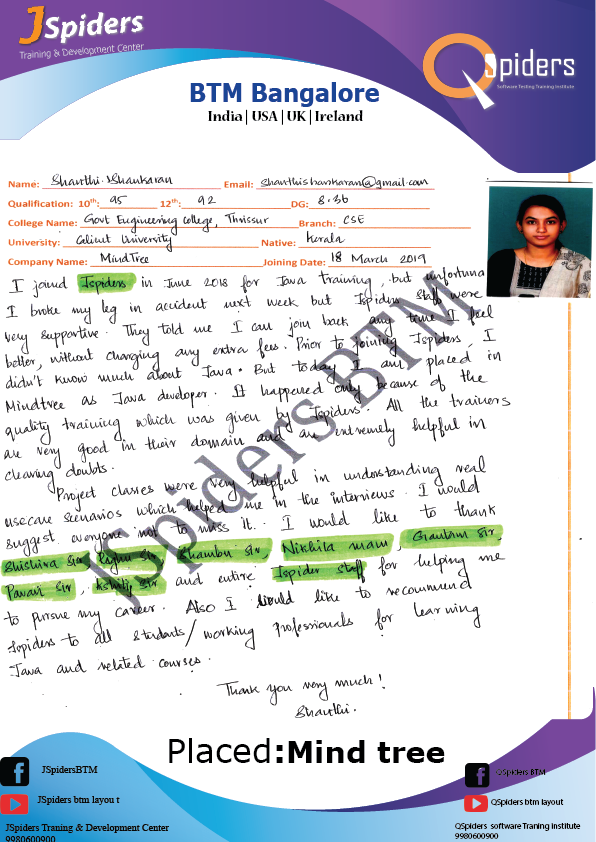 JSpiders
Training & Development Center
QSpiders
Software Testing Training Institute
BTM Bangalore
India| USA | UK | Ireland
Name: Shanthi Shankaran Email: shanthishankaran@gmail.com
Qualification: 10th: 95 12th: 92 DG: 8.36
College Name: Govt Engineering college, Thrissur Branch: CSE
University: Calicut University Native: Kerala
Company Name: MindTree Joining Date: 18 March 2019
I joined Jspiders in June 2018 for Java Training, but unfortuna
I broke my leg in accident next week but Jspiders staff were
very supportive. They told me I can join back any time I feel
better, without charging any extra fees. Prior to joining Jspiders, I
didn't know much about Java. But today I am placed in
Mindtree as Java developer. It happened only because of the
quality training which was given by Jspiders. All the trainers
are very good in their domain and are extremely helpful in
clearing doubts.
Project classes were very helpful in understanding real
usecase scenarios which helped me in the interviews. I would
suggest everyone not to miss it. I would like to thank
Shishira Sir Sir, Shambu Sir, Nikhila mam, Giautam Sir,
Pavan Sir, Kshitij Sir and entire Jspider staff for helping me
to pursue my career. Also I would like to recommend
Jspiders to all students/working professionals for learning
Java and related courses.
Thank you very much!
Shanthi.
JSpiders BTM
Placed:Mind tree
JSpidersBTM
QSpiders BTM
JSpiders btm layou t
QSpiders btm layout
JSpiders Traning & Development Center
9980600900
QSpiders software Traning institute
9980600900